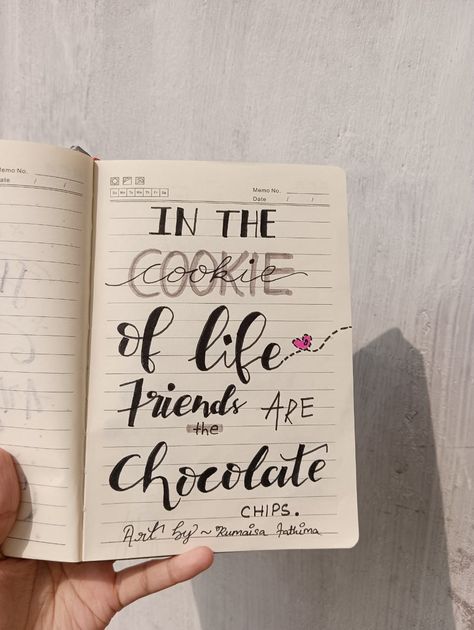 Memo No.
Date / /
Su Mo Tu We Th Fr Sa
Memo No.
Date / /
IN THE
COOKIE
cookie
of life
Friends ARE
the
Chocolate
CHIPS.
Art by ~ Rumaisa Fathima